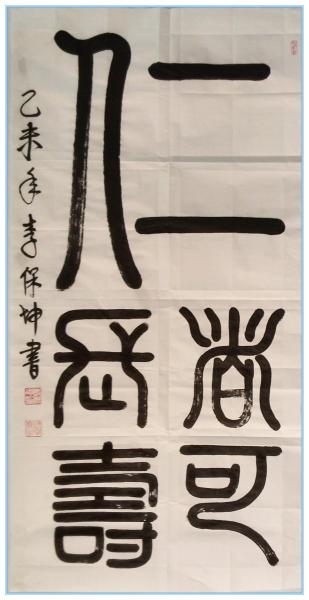 仁
者可
長壽
乙未年李保坤書